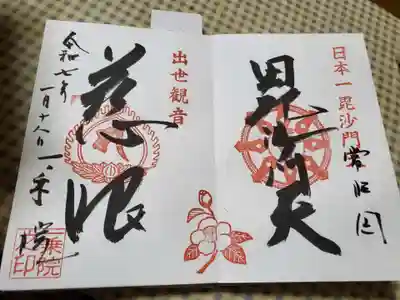 日本一毘沙門
毘沙門天
出世観音
慈眼
令和七年
一月十八日 一乗院